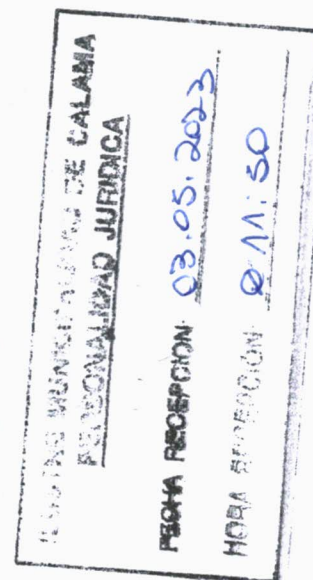 MUNICIPALIDAD DE CALAMA
PERSONALIDAD JURIDICA
FECHA RECEPCION 03.05.2023
HORA RECEPCION 11:50